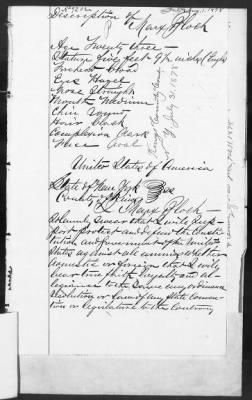 Description of
Mary Plock
Age Twenty three
Stature five feet 4½ inches (Eng)
Forehead broad
Eyes Hazel
Nose Straight
Mouth Medium
Chin Round
Hair Black
Complexion Dark
Face Oval
United States of America
State of New York
County of
I, Mary Plock
solemnly swear that I will sup-
port protect and defend the Consti-
tution and Government of the United
States against all enemies whether
domestic or foreign that I will
bear true faith loyalty and al-
legiance to the same any ordinance
Resolution or law of any State Conven-
tion or legislature to the Contrary
July 31, 1878